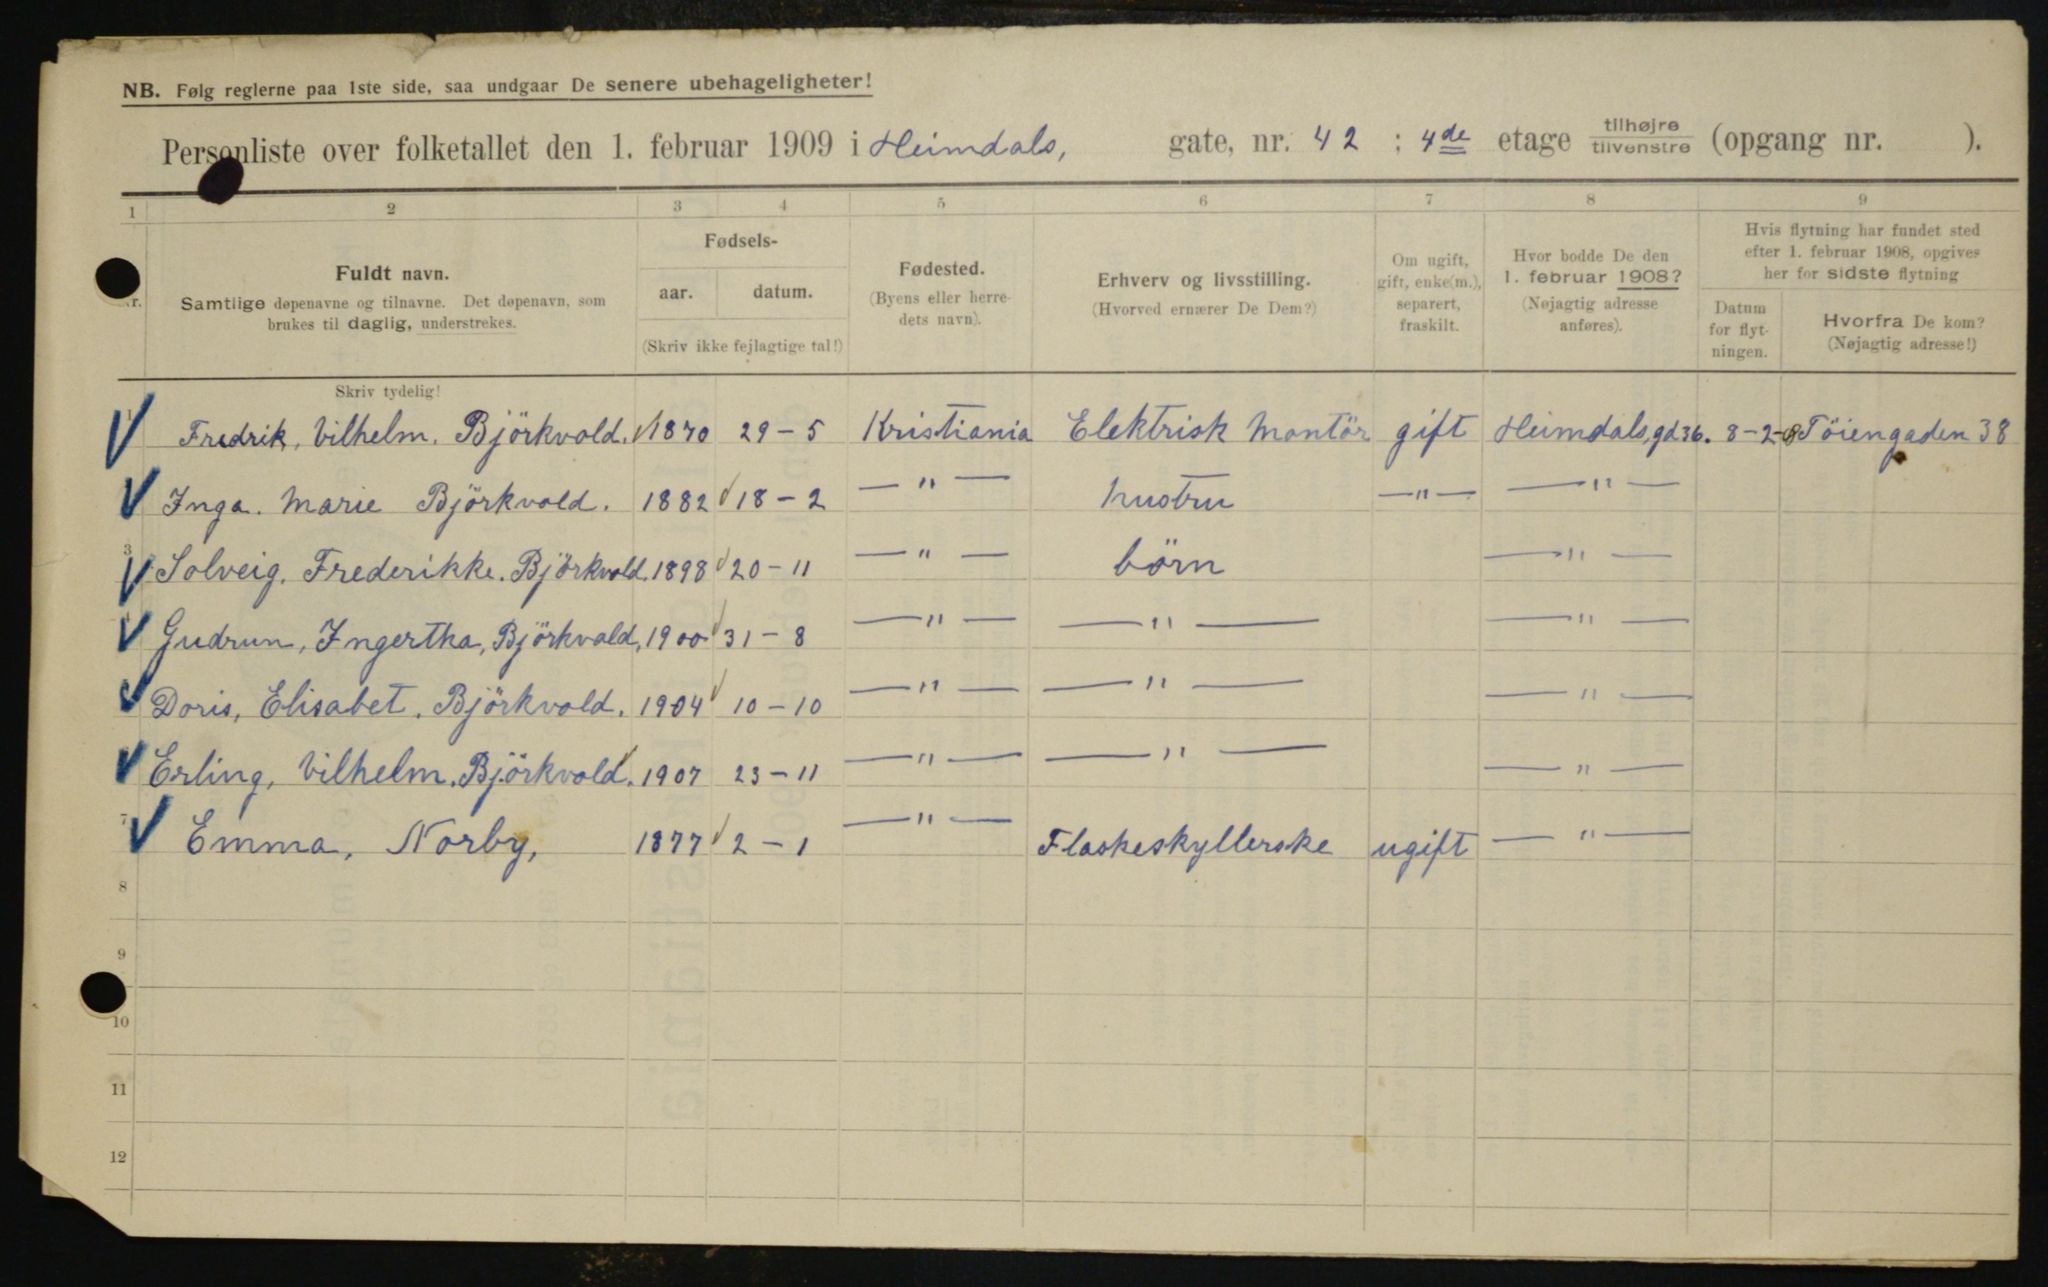 NB. Følg reglerne paa 1ste side, saa undgaar De senere ubehageligheter!
Personliste over folketallet den 1. februar 1909 i Heimdals, gate, nr. 42 ; 4de etage tilhøjre tilvenstre (opgang nr. ).
1 2 3 4 5 6 7 8 9
Fuldt navn.
Samtlige døpenavne og tilnavne. Det døpenavn, som
brukes til daglig, understrekes.
Fødsels-
aar. datum.
(Skriv ikke fejlagtige tal!)
Fødested.
(Byens eller herre-
dets navn).
Erhverv og livsstilling.
(Hvorved ernærer De Dem?)
Om ugift,
gift, enke(m.),
separert,
fraskilt.
Hvor bodde De den
1. februar 1908?
(Nøjagtig adresse
anføres).
Hvis flytning har fundet sted
efter 1. februar 1908, opgives
her for sidste flytning
Datum
for flyt-
ningen.
Hvorfra De kom?
(Nøjagtig adresse!)
Skriv tydelig!
1 Fredrik, Vilhelm. Björkvold. 1870 29-5 Kristiania Elektrisk Montör gift Heimdals,gd 36. 8-2-8 Töiengaden 38
Inga. Marie Björkvold. 1882 18-2 —"— hustru —"— —"—
3 Solveig. Frederikke. Björkvold. 1898 20-11 —"— börn —"—
Gudrun, Ingertha, Björkvold, 1900 31-8 —"— —"— —"—
Doris, Elisabet. Björkvold. 1904 10-10 —"— —"— —"—
Erling, Vilhelm. Björkvold. 1907 23-11 —"— —"— —"—
7 Emma, Norby, 1877 2-1 —"— Flaskeskyllerske ugift —"—
8
9
10
11
12